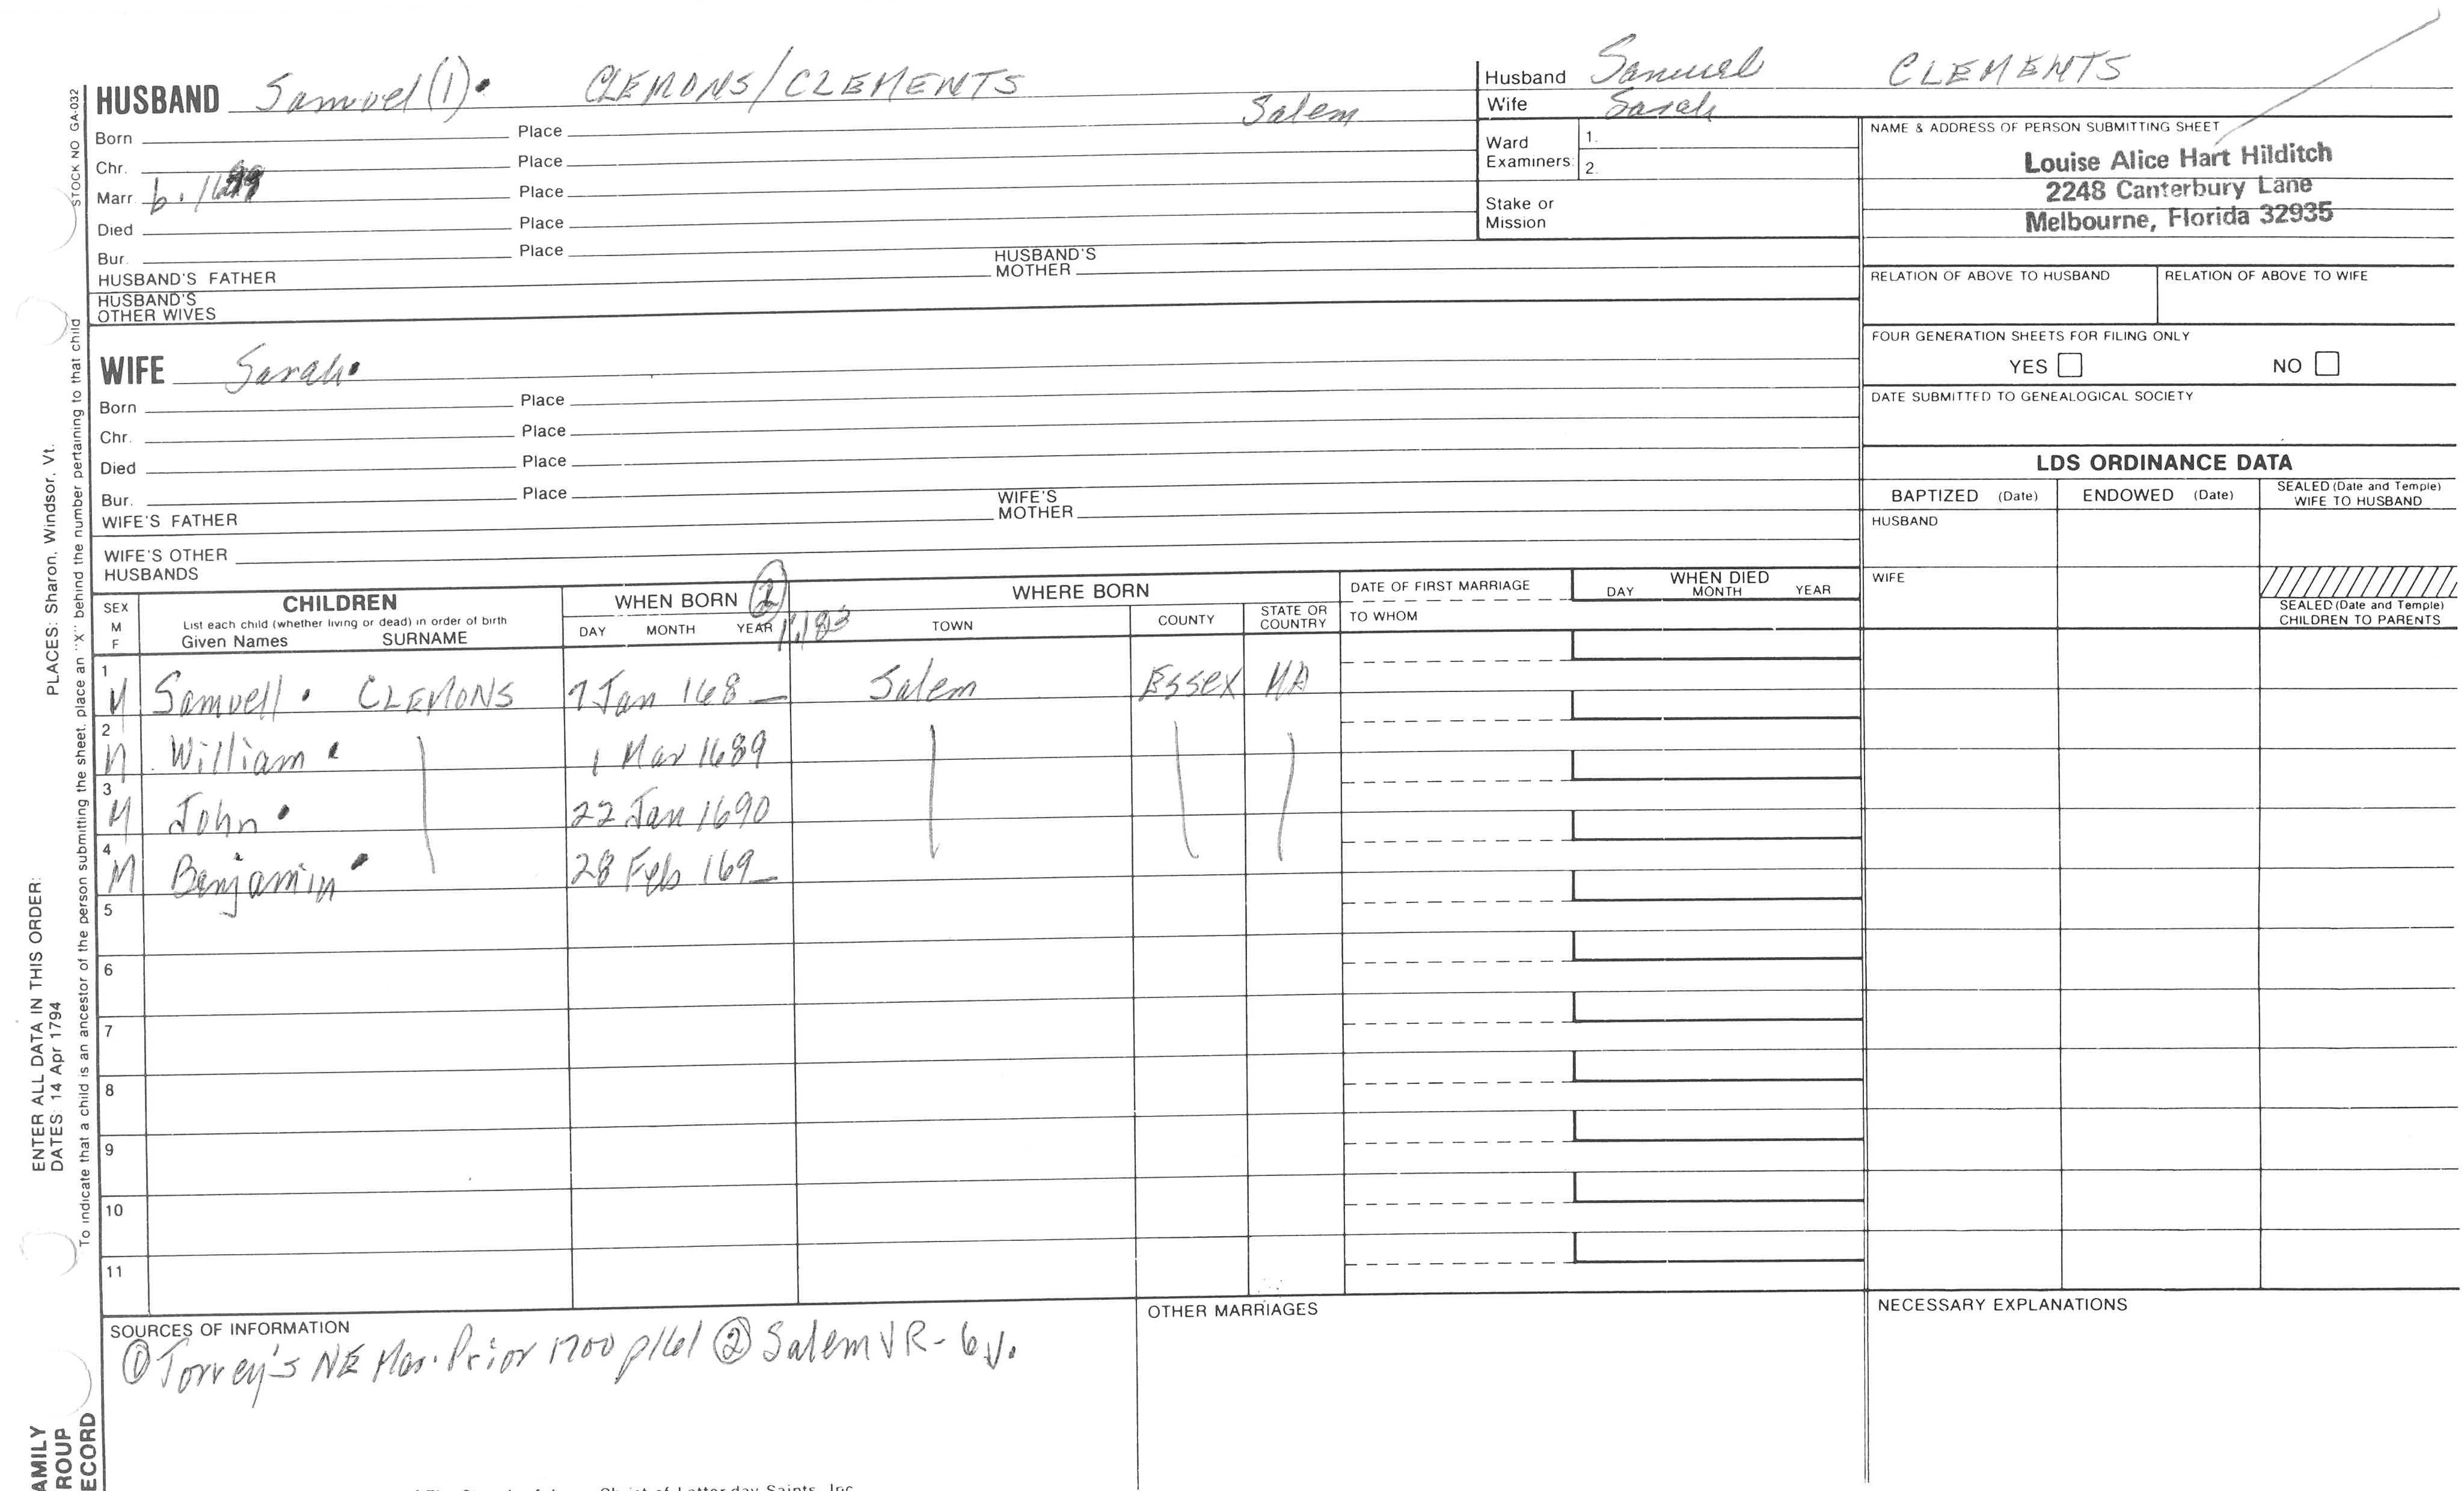 HUSBAND Samuel (1). CLEMONS/CLEMENTS Salem
Born Place
Chr. Place
Marr. b. Place
Died Place
Bur. Place
HUSBAND'S FATHER HUSBAND'S MOTHER
HUSBAND'S OTHER WIVES
WIFE Sarah.
Born Place
Chr. Place
Died Place
Bur. Place
WIFE'S FATHER WIFE'S MOTHER
WIFE'S OTHER HUSBANDS
Husband Samuel CLEMENTS
Wife Sarah
Ward Examiners: 1.
2.
Stake or Mission
NAME & ADDRESS OF PERSON SUBMITTING SHEET
Louise Alice Hart Hilditch
2248 Canterbury Lane
Melbourne, Florida 32935
RELATION OF ABOVE TO HUSBAND RELATION OF ABOVE TO WIFE
FOUR GENERATION SHEETS FOR FILING ONLY
YES NO
DATE SUBMITTED TO GENEALOGICAL SOCIETY
LDS ORDINANCE DATA
BAPTIZED (Date) ENDOWED (Date) SEALED (Date and Temple) WIFE TO HUSBAND
HUSBAND
WIFE
SEALED (Date and Temple) CHILDREN TO PARENTS
SEX M F
CHILDREN
List each child (whether living or dead) in order of birth
Given Names SURNAME
WHEN BORN
DAY MONTH YEAR
WHERE BORN
TOWN COUNTY STATE OR COUNTRY
DATE OF FIRST MARRIAGE
TO WHOM
WHEN DIED
DAY MONTH YEAR
1 M Samuell . CLEMONS 7 Jan 168_ Salem Essex MA
2 M William . 1 Mar 1689
3 M John . 22 Jan 1690
4 M Benjamin . 28 Feb 169_
5
6
7
8
9
10
11
SOURCES OF INFORMATION
① Torrey's NE Mar. Prior 1700 p161 ② Salem VR - 6v.
OTHER MARRIAGES
NECESSARY EXPLANATIONS
STOCK NO GA-032
PLACES: Sharon, Windsor, Vt.
To indicate that a child is an ancestor of the person submitting the sheet, place an "X" behind the number pertaining to that child
ENTER ALL DATA IN THIS ORDER:
DATES: 14 Apr 1794
AMILY
ROUP
ECORD